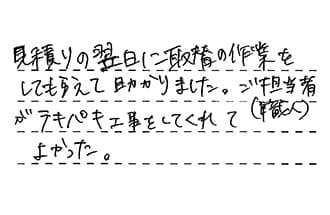 見積りの翌日に取替の作業を
してもらえて助かりました。ご担当者
(職人)
がテキパキ工事をしてくれて
よかった。